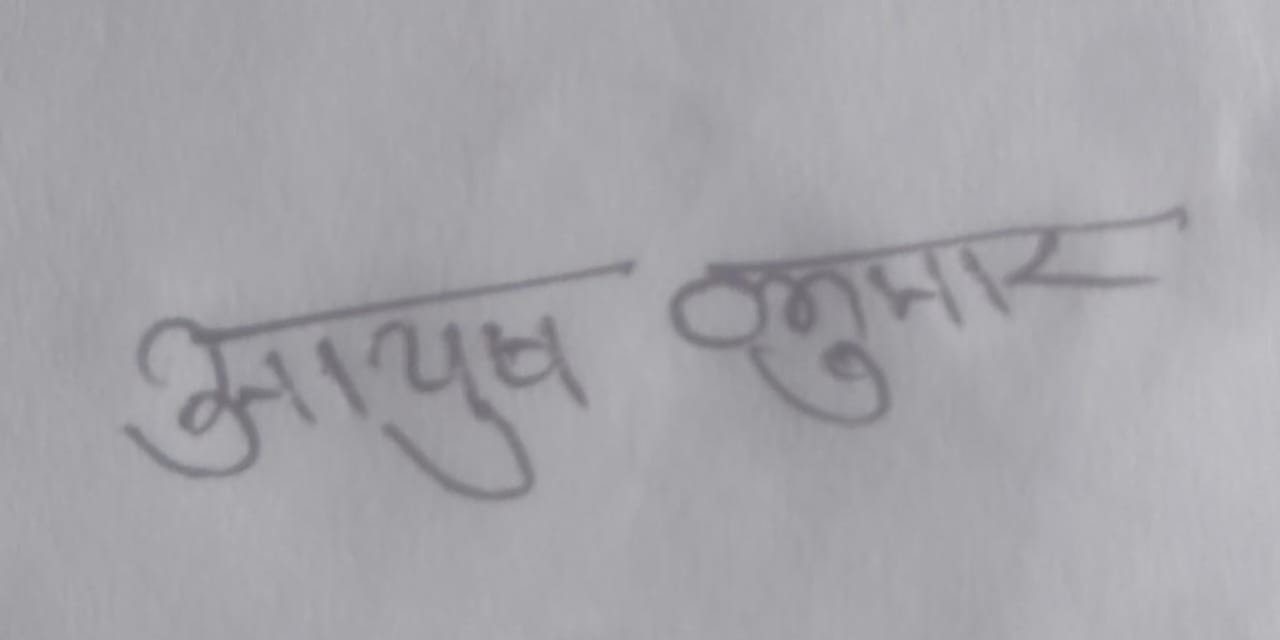 आयुष कुमार